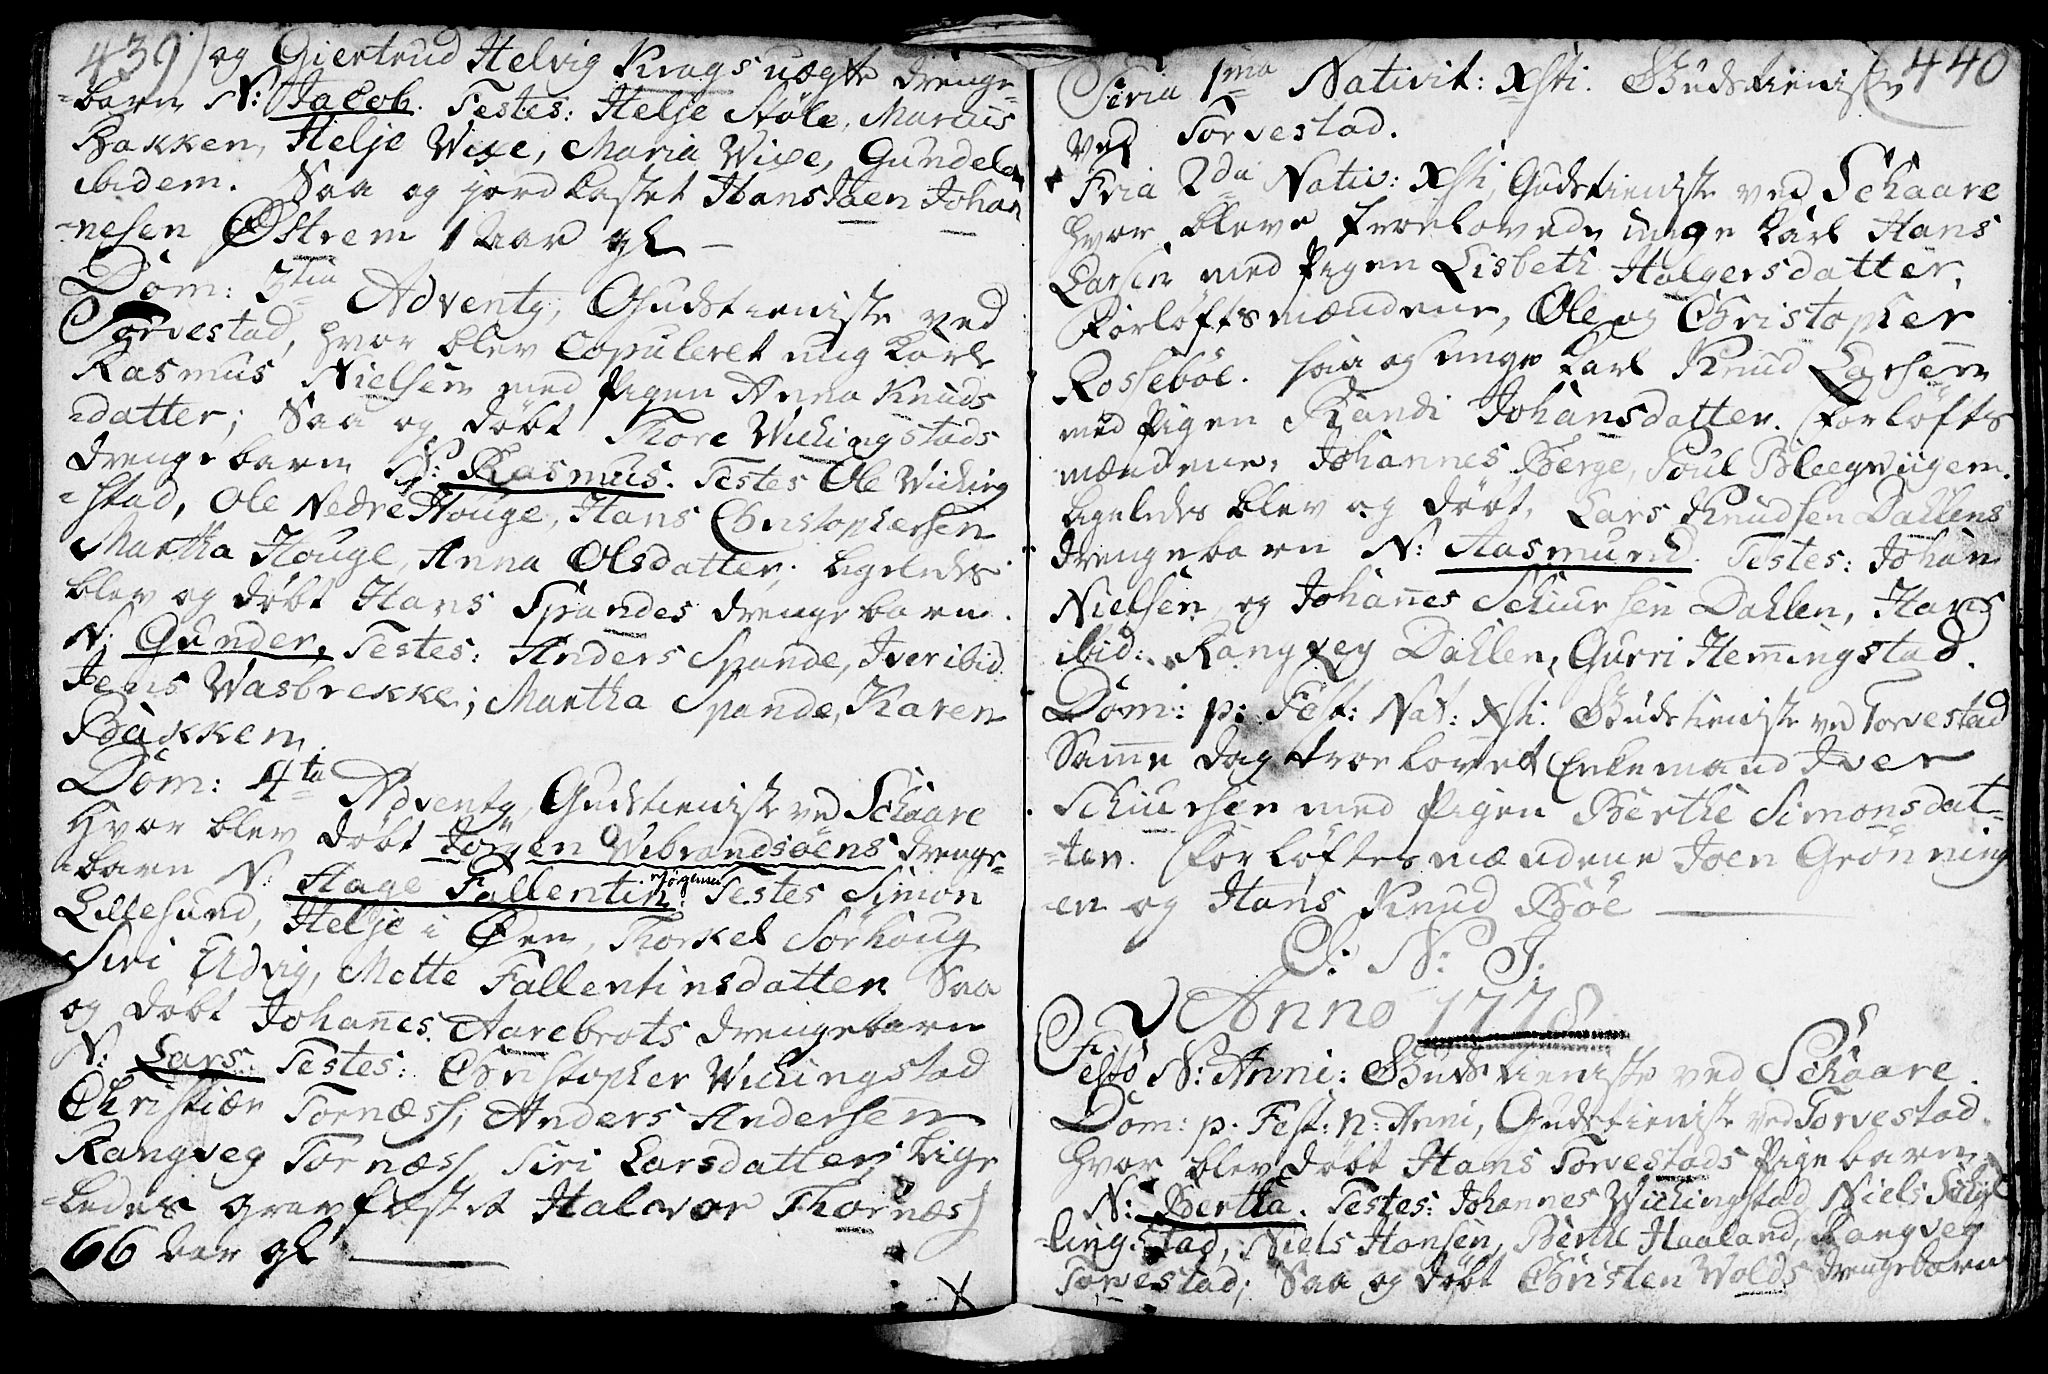 439) og Giertrud Helvig Krags uægte drenge-
-barn N: Jacob. Testes: Helje Støle, Marcus
Bakken, Helje Wixe, Maria Wixe, Gundela
ibidem. Saa og jordkastet Hans Jaen Johan
-nesen Østrem 1 aar gl
Dom: 3tia Adventg, Gudstieniste ved
Torvestad, hvor blev Copuleret ung karl
Rasmus Nielsen med Pigen Anna Knuds
=datter; Saa og döbt Thore Wichingstads
drengebarn N: Rasmus. Testes Ole Wiching
=stad, Ole Nedre Houge, Hans Christophersen
Martha Houge, Anna Olsdatter; ligeledes
blev og döbt Hans Spandes drengebarn.
N: Gunder, Testes: Anders Spande, Iver ibid.
Jens Wasbrekke; Martha Spande, Karen
Bakken.
Dom: 4ta Adventg, Gudstieniste ved Schaare
hvor blev döbt Jörgen Wibrandsöens drenge-
-barn N: Aage Fallentin Jörgensen Testes Simon
Lillesund, Helje i Øen, Thorkel Sörhoug
Siri Udvig, Mette Fallentinsdatter Saa
og döbt Johannes Aarebrots drengebarn
N: Lars: Testes: Christopher Wichingstad
Christian Tornæss, Anders Andersen
Rangveg Tornæss, Siri Larsdatter; lige
-ledes gravfæstet Halvor Thornæss
66 aar gl
X
440
Feria 1ma Nativit: Xsti. Gudstieniste
ved Torvestad.
Fria 2da Nativ: Xsti, Gudstieniste ved Schaare
hvor bleve troelovede unge karl Hans
Larsen med Pigen Lisbeth Holgersdatter,
Forlöftsmændene, Ole og Christopher
Rosseböe. saa og unge karl Knud Larsen
med Pigen Randi Johansdatter. Forlöfts
mændene, Johannes Berge, Poul Bleegvigen.
ligeledes blev og döbt, Lars Knudsen Dahlens
drengebarn N: Aasmund. Testes: Johan
Nielsen, og Johannes Schiursen Dahlen, Hans
ibid: Rangveg Dahlen, Gurri Hemmingstad.
Dom: p: Fest: Nat: Xsti: Gudstieniste ved Torvestad
Samme dag troelovet Enkemand Iver
Schiursen med Pigen Berthe Simonsdat-
-ter. Forlöftesmændene Joen Grönning
-en og Hans Knud Böe
I: N: J.
Anno 1778
Festo N: Anni: Gudstieniste ved Schaare.
Dom: p. Fest: n: Anni, Gudstieniste ved Torvestad.
hvor blev döbt Hans Torvestads Pigebarn
N: Bertha. Testes: Johannes Wichingstad Niels
-lingstad, Niels Hansen, Berthe Haaland, Rangveg
Torvestad; Saa og döbt Christen Wolds drengebarn